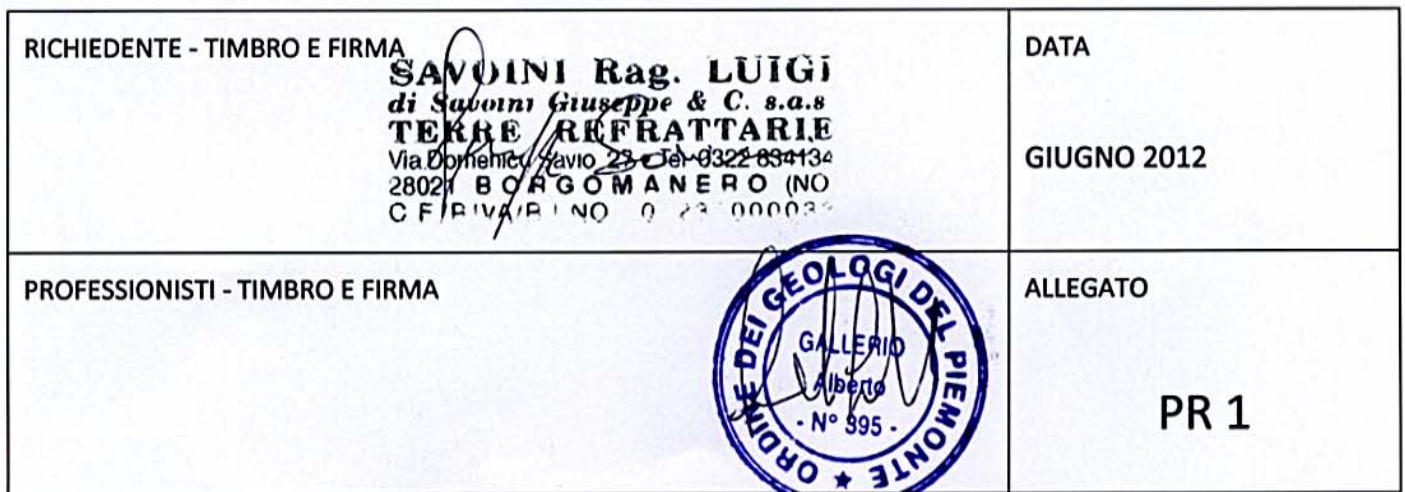 RICHIEDENTE - TIMBRO E FIRMA
SAVOINI Rag. LUIGI
di Savoini Giuseppe & C. s.a.s
TERRE REFRATTARIE
Via Domenico Savio 23 - Tel. 0322 834134
28021 BORGOMANERO (NO
DATA
GIUGNO 2012
PROFESSIONISTI - TIMBRO E FIRMA
ORDINE DEI GEOLOGI DEL PIEMONTE ★
GALLERIO
Alberto
- N° 395 -
ALLEGATO
PR 1